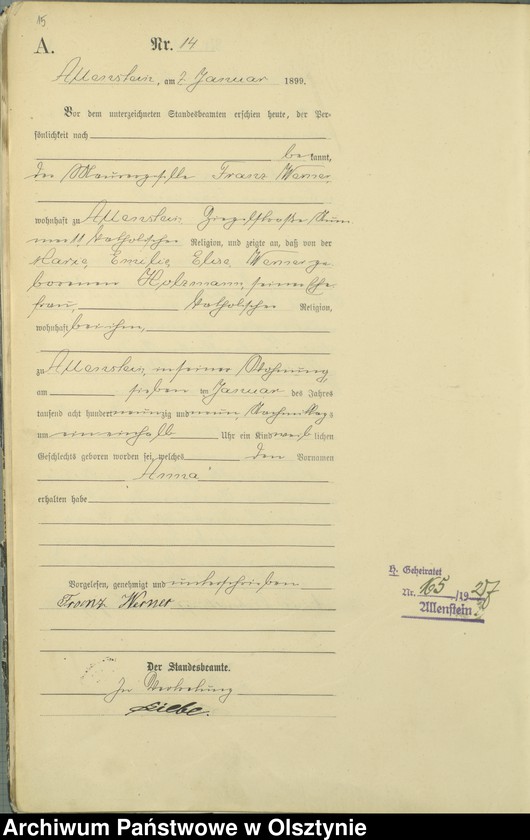 15
A.
Nr. 14
Allenstein, am 7. Januar 1899.
Vor dem unterzeichneten Standesbeamten erschien heute, der Per-
sönlichkeit nach
bekannt,
der Maurergeselle Franz Werner,
wohnhaft zu Allenstein Ziegelstraße Num-
mer 11, katholischer Religion, und zeigte an, daß von der
Maria Emilie Elisa Werner ge-
borenen Holzmann, seiner Ehe-
frau, katholischer Religion,
wohnhaft bei ihm,
zu Allenstein, in seiner Wohnung,
am sieben ten Januar des Jahres
tausend acht hundert neunzig und neun Nachmittags
um ein einhalb Uhr ein Kind weiblichen
Geschlechts geboren worden sei, welches den Vornamen
Anna
erhalten habe
Vorgelesen, genehmigt und unterschrieben
Franz Werner
Der Standesbeamte.
In Vertretung
H. Geheiratet
Nr. 165 /1927
Allenstein.
Archiwum Państwowe w Olsztynie